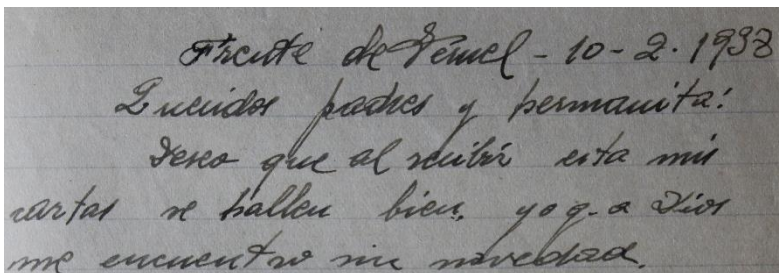 Frente de Teruel - 10 - 2. 1938
Queridos padres y hermanita:
Deseo que al recibir esta mis
cartas se hallen bien, yo g. a Dios
me encuentro sin novedad.